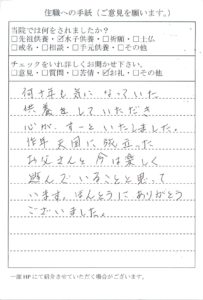 住職への手紙(ご意見を願います。)
当院では何をされましたか?
□先祖供養・☑水子供養・□祈願・□土仏
□戒名・□相談・□手元供養・□その他
チェックをいれ詳しくお聞かせ下さい。
□意見・□質問・□苦情・☑お礼・□その他
何十年も気になっていた。
供養をしていただき
心が、すーといたしました。
昨年天国に旅立った
お父さんと今は楽しく
遊んでいることと思って
います。ほんとうにありがとう
ございました。
一部HPにて紹介させていただく場合がございます。